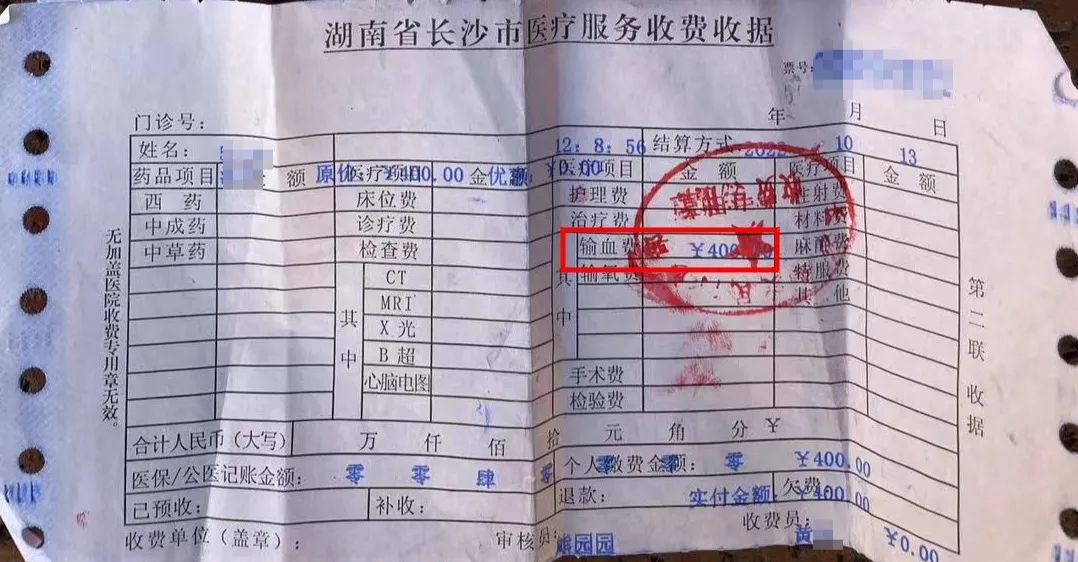 湖南省长沙市医疗服务收费收据
票号:
年 月 日
门诊号:
姓名: 12:8:56 结算方式: 2022 10 13
药品项目 金额 原价: ¥400.00 医疗项目 金额 优惠: ¥0.00 医疗项目 金额 医疗项目 金额
西药 床位费 护理费 注射费
中成药 诊疗费 治疗费 材料费
中草药 检查费 输血费 ¥400.00 麻醉费
其中 CT 其中 输氧费 特服费
MRI 其他
X光
B超 手术费
心脑电图 检验费
合计人民币(大写) 万 仟 佰 拾 元 角 分 ¥
医保/公医记账金额: 零 零 肆 零 零 零 零 个人缴费金额: ¥400.00
已预收: 补收: 退款: 实付金额: ¥400.00 欠费:
收费单位(盖章): 审核员: 园园 收费员: 黄 ¥0.00
无加盖医院收费专用章无效。
第二联 收据